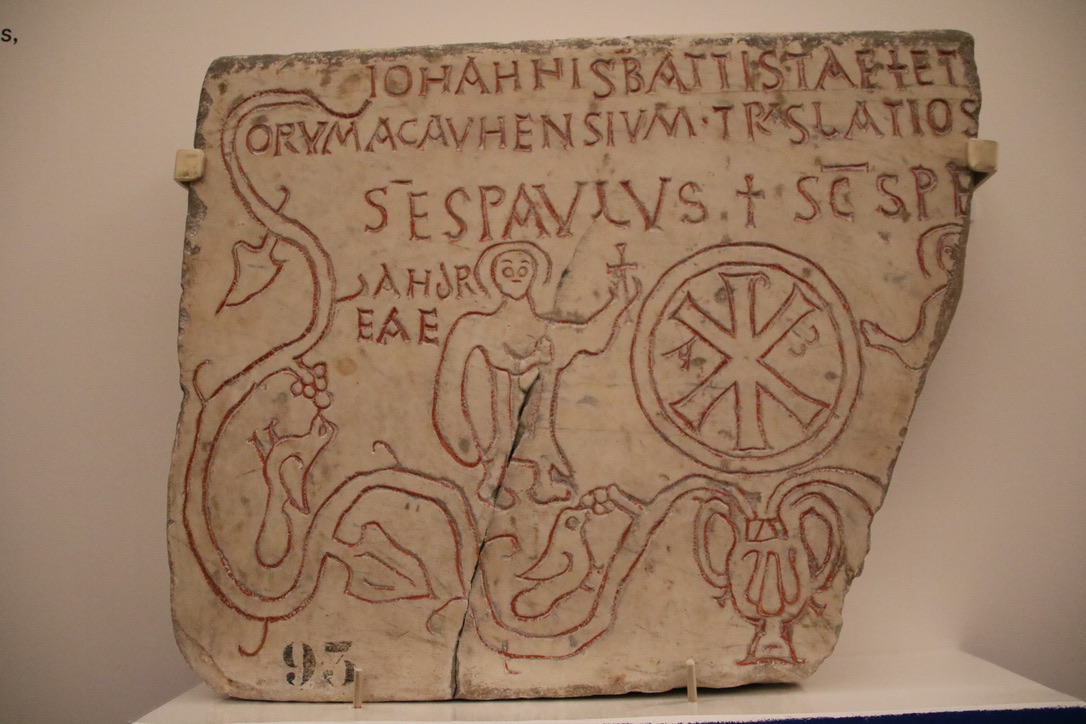 s,
IOHAHHIS B̅ATTISTAE † ET
ORVMACAVHENSIVM · TRASLATIOS
S̅ESPAVLVS · † SC̅SPE
AHDR
EAE
93